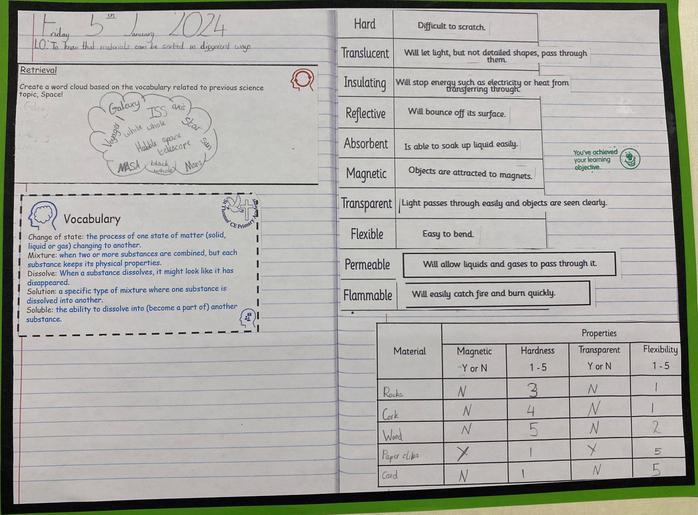 Friday 5th January 2024
LO: To know that materials can be sorted in different ways
Retrieval
Create a word cloud based on the vocabulary related to previous science
topic, Space!
Galaxy
ISS
Star
Voyager 1
white whole
Sun
Hubble space
telescope
NASA
black
whole
Mars
Vocabulary
Change of state: the process of one state of matter (solid,
liquid or gas) changing to another.
Mixture: when two or more substances are combined, but each
substance keeps its physical properties.
Dissolve: When a substance dissolves, it might look like it has
disappeared.
Solution: a specific type of mixture where one substance is
dissolved into another.
Soluble: the ability to dissolve into (become a part of) another
substance.
Hard Difficult to scratch.
Translucent Will let light, but not detailed shapes, pass through
them.
Insulating Will stop energy such as electricity or heat from
transferring through.
Reflective Will bounce off its surface.
Absorbent Is able to soak up liquid easily.
Magnetic Objects are attracted to magnets.
You've achieved
your learning
objective.
Transparent Light passes through easily and objects are seen clearly.
Flexible Easy to bend.
Permeable Will allow liquids and gases to pass through it.
Flammable Will easily catch fire and burn quickly.
Properties
Material Magnetic Hardness Transparent Flexibility
Y or N 1 - 5 Y or N 1 - 5
Rocks N 3 N 1
Cork N 4 N 1
Wood N 5 N 2
Paper clips Y 1 Y 5
Card N 1 N 5